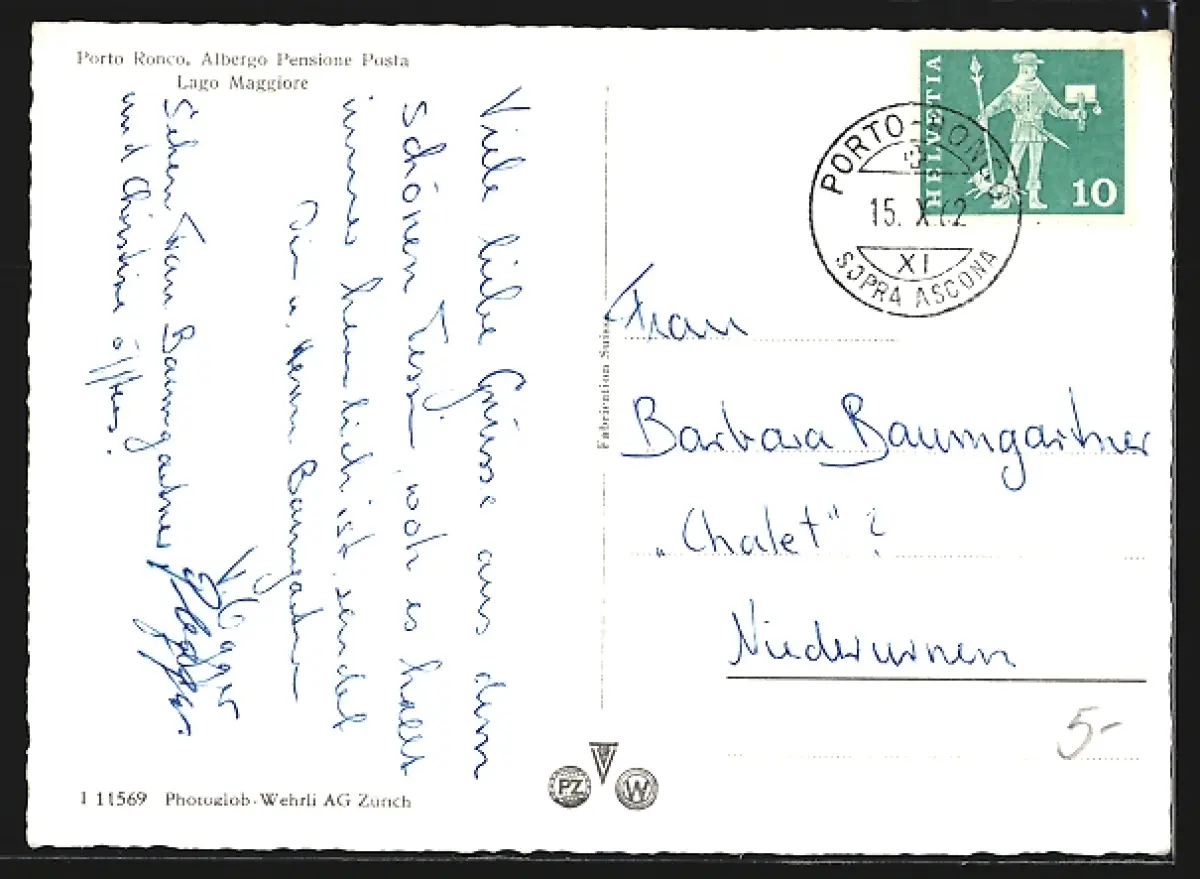 Porto Ronco. Albergo Pensione Posta
Lago Maggiore
Viele liebe Grüsse aus dem
schönen Tessin, woh es halt
immer herrlich ist, sendet
Dir u. Herrn Baumgartner
V. Egger
Sehen Frau Baumgartner
und Christine öfters.
I 11569 Photoglob-Wehrli AG Zürich
Fabrication Suisse
PZ
W
HELVETIA
10
PORTO-RONCO
15. X 62
XI
SOPRA ASCONA
Frau
Barbara Baumgartner
„Chalet“?
Niederurnen
5-